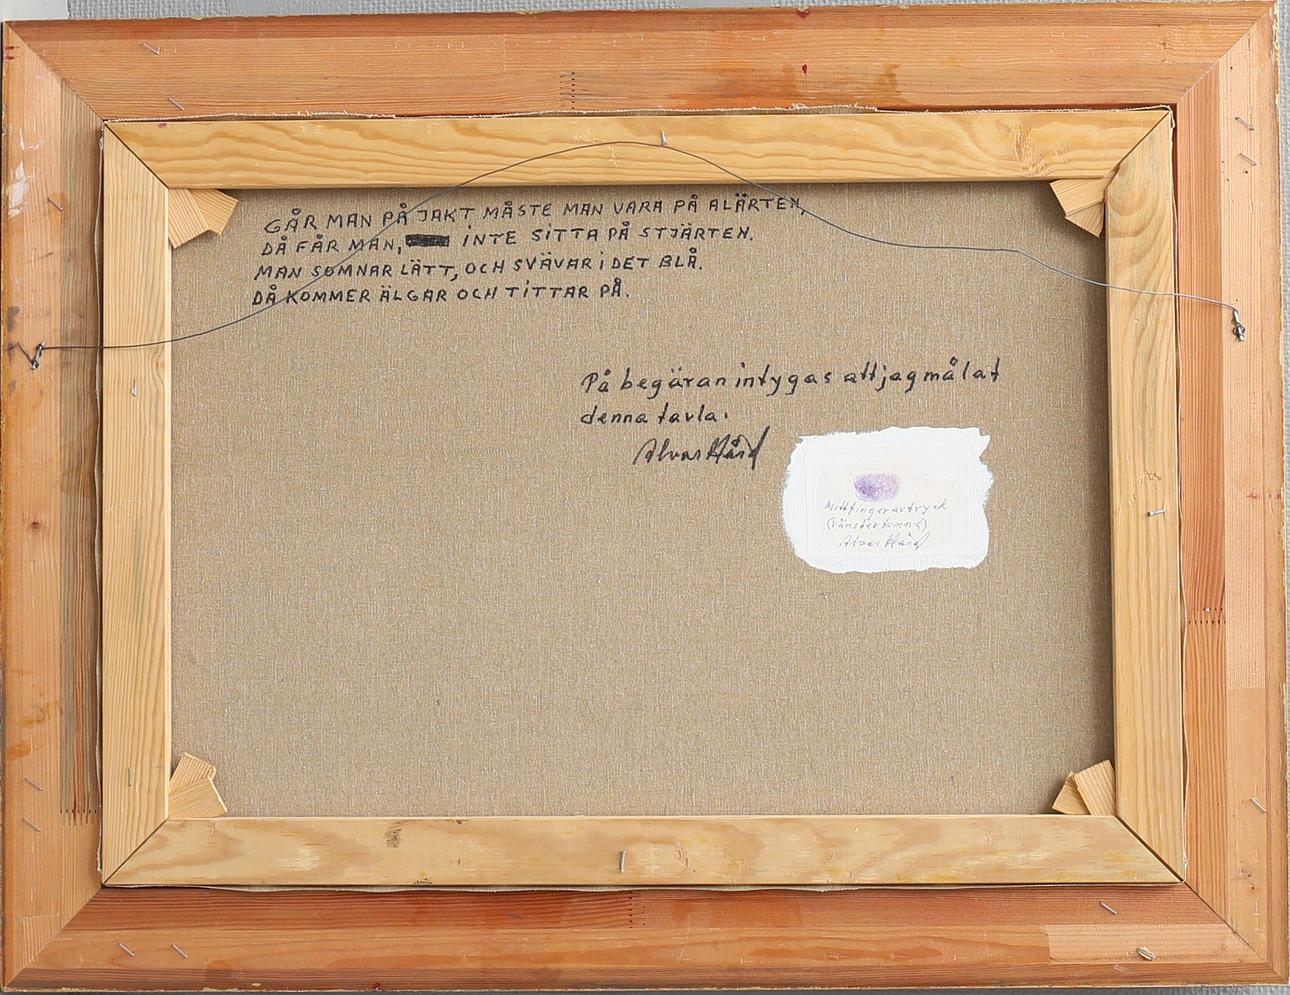 GÅR MAN PÅ JAKT MÅSTE MAN VARA PÅ ALÄRTEN,
DÅ FÅR MAN, INTE SITTA PÅ STJÄRTEN.
MAN SOMNAR LÄTT, OCH SVÄVAR i DET BLÅ.
DÅ KOMMER ÄLGAR OCH TiTTAR PÅ.
På begäran intygas att jag målat
denna tavla.
Alvar Hård
Mittfingeravtryck
(vänster tumme)
Alvar Hård